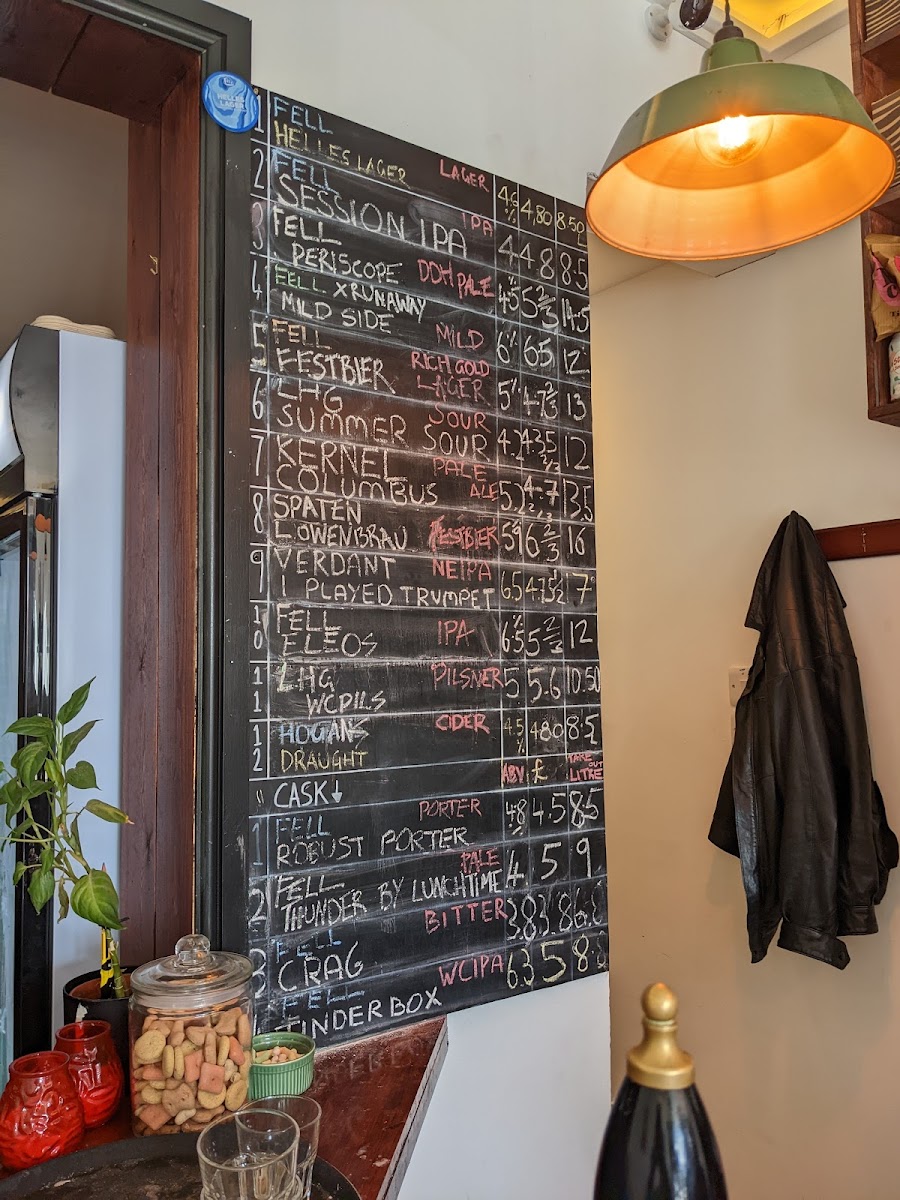 HELLES
LAGER
1 FELL
HELLES LAGER LAGER 4.6% 4,80 8.50
2 FELL IPA
SESSION IPA 4 4.8 8.5
3 FELL
PERISCOPE DDH PALE 4.5% 5 2/3 14.5
4 FELL X RUNAWAY
MILD SIDE MILD 6% 65 12
5 FELL RICH GOLD
FESTBIER LAGER 5% 4.7 2/3 13
6 LHG SOUR
SUMMER SOUR 4.2 4.35 2/3 12
7 KERNEL PALE
COLUMBUS ALE 5.2 4.7 2/3 13.5
8 SPATEN
LOWENBRAU FESTBIER 5.9 6 2/3 16
9 VERDANT NEIPA
I PLAYED TRUMPET 6.5 4.75 1/2 17
10 FELL IPA
ELEOS 6.5% 5 2/3 12
11 LHG PILSNER 5 5.6 10.50
WC PILS
12 HOGANS CIDER 4.5% 4.80 8.5
DRAUGHT
CASK↓ ABV £ TAKE OUT LITRE
1 FELL PORTER 4.8% 4.5 8.5
ROBUST PORTER
2 FELL PALE 4 5 9
THUNDER BY LUNCHTIME
3 FELL BITTER 3.8 3.8
CRAG
FELL WCIPA 6.3 5 8.5
TINDERBOX